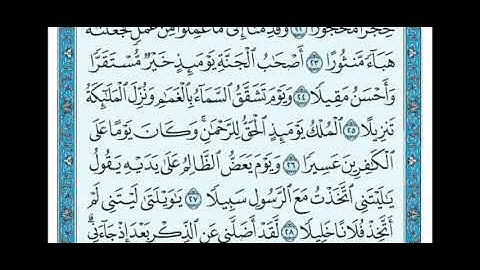 حِجْرًا مَّحْجُورًا ٢٢ وَقَدِمْنَآ إِلَىٰ مَا عَمِلُوا۟ مِنْ عَمَلٍ فَجَعَلْنَٰهُ
هَبَآءً مَّنثُورًا ٢٣ أَصْحَٰبُ ٱلْجَنَّةِ يَوْمَئِذٍ خَيْرٌ مُّسْتَقَرًّا
وَأَحْسَنُ مَقِيلًا ٢٤ وَيَوْمَ تَشَقَّقُ ٱلسَّمَآءُ بِٱلْغَمَٰمِ وَنُزِّلَ ٱلْمَلَٰٓئِكَةُ
تَنزِيلًا ٢٥ ٱلْمُلْكُ يَوْمَئِذٍ ٱلْحَقُّ لِلرَّحْمَٰنِ ۚ وَكَانَ يَوْمًا عَلَى
ٱلْكَٰفِرِينَ عَسِيرًا ٢٦ وَيَوْمَ يَعَضُّ ٱلظَّالِمُ عَلَىٰ يَدَيْهِ يَقُولُ
يَٰلَيْتَنِى ٱتَّخَذْتُ مَعَ ٱلرَّسُولِ سَبِيلًا ٢٧ يَٰوَيْلَتَىٰ لَيْتَنِى لَمْ
أَتَّخِذْ فُلَانًا خَلِيلًا ٢٨ لَّقَدْ أَضَلَّنِى عَنِ ٱلذِّكْرِ بَعْدَ إِذْ جَآءَنِى ۗ